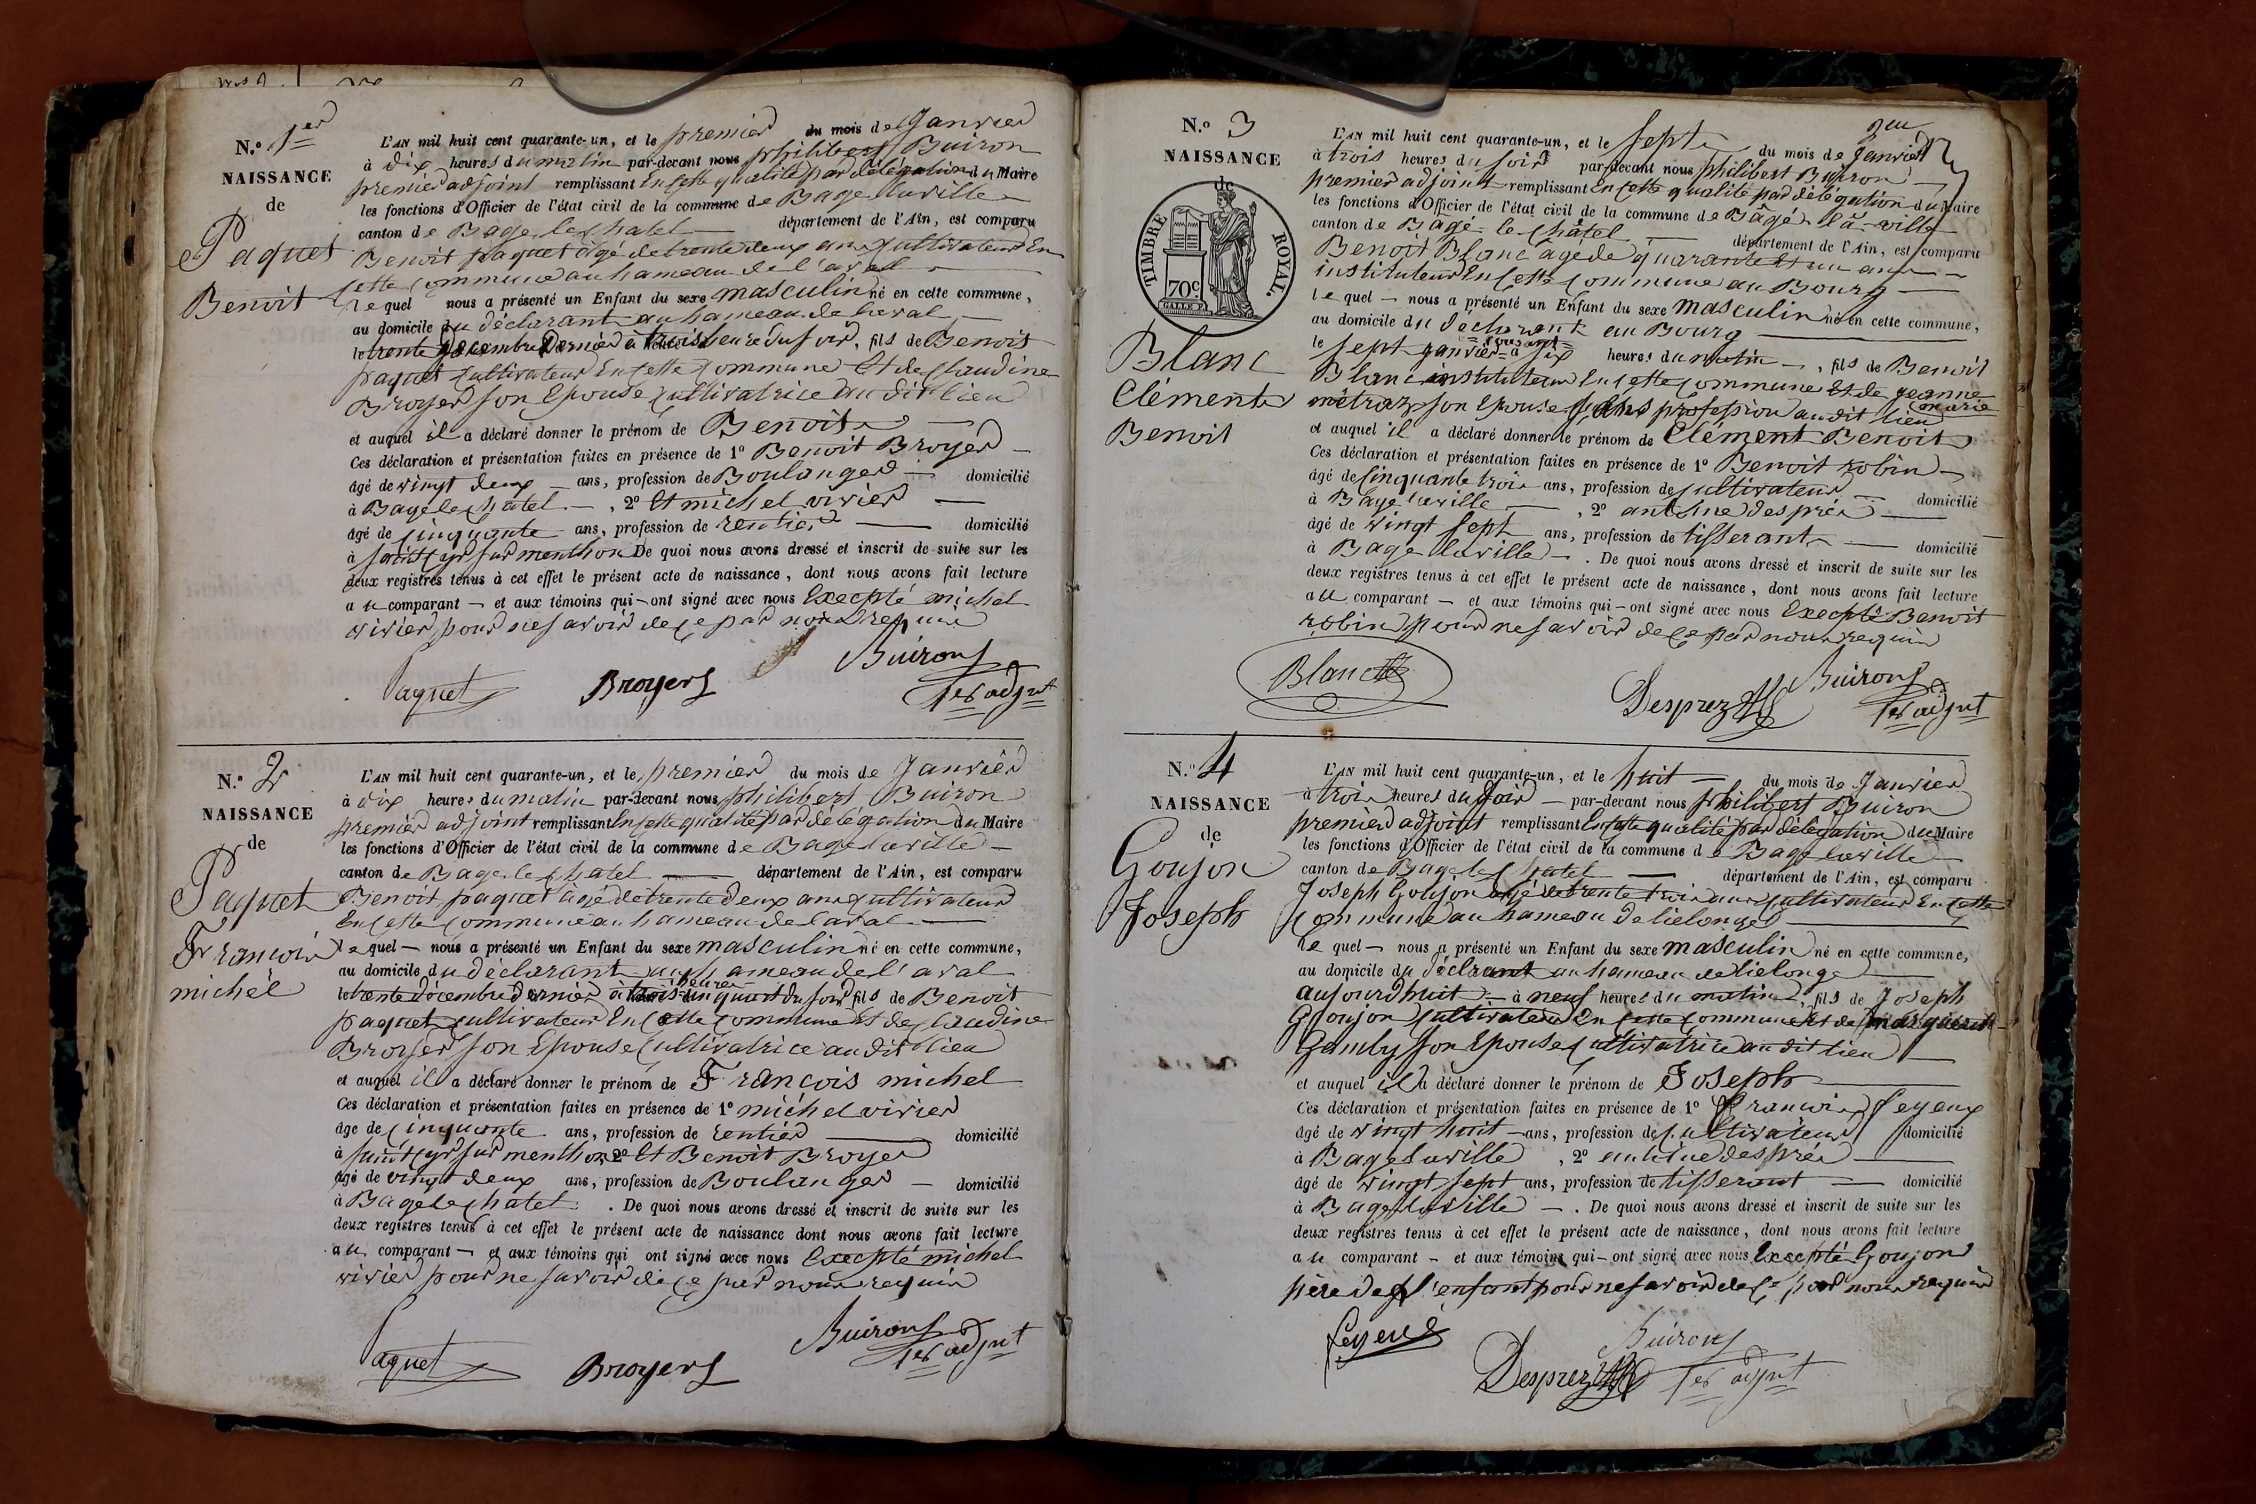 N.o 1er
NAISSANCE
de
Paquet
Benoit
L'AN mil huit cent quarante-un, et le premier du mois de Janvier
à dix heures du matin par-devant nous philibert Buiron
premier adjoint remplissant En cette qualité par délégation du Maire
les fonctions d'Officier de l'état civil de la commune de Bagé laville
canton de Bagé le chatel département de l'Ain, est comparu
Benoit paquet âgé de trente deux ans cultivateur En
cette commune au hameau de l'aval
le quel nous a présenté un Enfant du sexe masculin né en cette commune,
au domicile du déclarant au hameau de laval
le trente décembre dernier à trois heure du soir, fils de Benoit
paquet cultivateur En cette commune Et de claudine
Broyer son Epouse cultivatrice au dit lieu
et auquel il a déclaré donner le prénom de Benoit
Ces déclaration et présentation faites en présence de 1o Benoit Broyer
âgé de vingt deux ans, profession de Boulanger domicilié
à Bagé le chatel, 2o Et michel vivier
âgé de cinquante ans, profession de rentier domicilié
à saint cyr sur menthon De quoi nous avons dressé et inscrit de suite sur les
deux registres tenus à cet effet le présent acte de naissance, dont nous avons fait lecture
au comparant et aux témoins qui ont signé avec nous Execpté michel
vivier pour ne savoir de ce par nous requis
Paquet Broyer Buiron
1er adjnt
N.o 2
NAISSANCE
de
Paquet
François
michel
L'AN mil huit cent quarante-un, et le premier du mois de Janvier
à dix heures du matin par-devant nous philibert Buiron
premier adjoint remplissant En cette qualité par délégation du Maire
les fonctions d'Officier de l'état civil de la commune de Bagé laville
canton de Bagé le chatel département de l'Ain, est comparu
Benoit paquet âgé de trente deux ans cultivateur
En cette commune au hameau de laval
le quel nous a présenté un Enfant du sexe masculin né en cette commune,
au domicile du déclarant au hameau de l'aval
le trente décembre dernier à trois heures un quart du soir fils de Benoit
paquet cultivateur En cette commune Et de claudine
Broyer son Epouse cultivatrice au dit lieu
et auquel il a déclaré donner le prénom de François michel
Ces déclaration et présentation faites en présence de 1o michel vivier
âgé de cinquante ans, profession de rentier domicilié
à saint cyr sur menthon, 2o Et Benoit Broyer
âgé de vingt deux ans, profession de Boulanger domicilié
à Bagé le chatel. De quoi nous avons dressé et inscrit de suite sur les
deux registres tenus à cet effet le présent acte de naissance dont nous avons fait lecture
au comparant et aux témoins qui ont signé avec nous Execpté michel
vivier pour ne savoir de ce par nous requis
Paquet Broyer Buiron
1er adjnt
N.o 3
NAISSANCE
de
TIMBRE ROYAL.
70c
Blanc
Clément
Benoit
L'AN mil huit cent quarante-un, et le sept du mois de Janvier
à trois heures du soir par-devant nous philibert Buiron
premier adjoint remplissant En cette qualité par délégation du Maire
les fonctions d'Officier de l'état civil de la commune de Bâgé-la-ville
canton de Bâgé-le-châtel département de l'Ain, est comparu
Benoit Blanc âgé de quarante Et un ans
instituteur En cette commune au Bourg
le quel nous a présenté un Enfant du sexe masculin né en cette commune,
au domicile du déclarant au Bourg
le sept janvier à six heures du matin, fils de Benoit
Blanc instituteur En cette commune Et de jeanne marie
métraz son Epouse sans profession au dit lieu
et auquel il a déclaré donner le prénom de Clément Benoit
Ces déclaration et présentation faites en présence de 1o Benoit robin
âgé de cinquante trois ans, profession de cultivateur domicilié
à Bagé laville, 2o antoine després
âgé de vingt sept ans, profession de tisserant domicilié
à Bagé laville. De quoi nous avons dressé et inscrit de suite sur les
deux registres tenus à cet effet le présent acte de naissance, dont nous avons fait lecture
au comparant et aux témoins qui ont signé avec nous Execpté Benoit
robin pour ne savoir de ce par nous requis
Blanc Desprez Buiron
1er adjnt
N.o 4
NAISSANCE
de
Goujon
Joseph
L'AN mil huit cent quarante-un, et le huit du mois de Janvier
à trois heures du soir par-devant nous philibert Buiron
premier adjoint remplissant En cette qualité par délégation du Maire
les fonctions d'Officier de l'état civil de la commune de Bagé laville
canton de Bagé le chatel département de l'Ain, est comparu
Joseph Goujon âgé de trente trois ans cultivateur En cette
commune au hameau de lielonge
le quel nous a présenté un Enfant du sexe masculin né en cette commune,
au domicile du déclarant au hameau de lielonge
aujourdhuit à neuf heures du matin, fils de Joseph
Goujon cultivateur En cette commune Et de marguerite
Gamby son Epouse cultivatrice au dit lieu
et auquel il a déclaré donner le prénom de Joseph
Ces déclaration et présentation faites en présence de 1o François feyeux
âgé de vingt huit ans, profession de cultivateur domicilié
à Bagé laville, 2o antoine després
âgé de vingt sept ans, profession de tisserant domicilié
à Bagé laville. De quoi nous avons dressé et inscrit de suite sur les
deux registres tenus à cet effet le présent acte de naissance, dont nous avons fait lecture
au comparant et aux témoins qui ont signé avec nous Execpté Goujon
père de l'enfant pour ne savoir de ce par nous requis
Desprez Buiron
1er adjnt